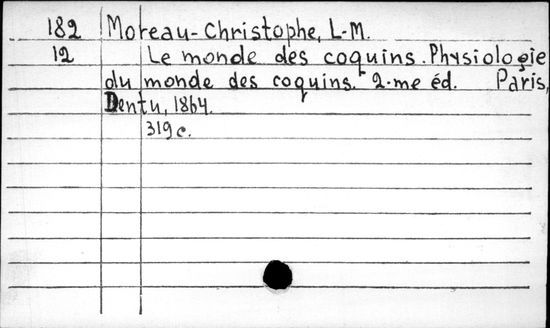 182 Moreau-Christophe, L-M.
12 Le monde des coquins. Physiologie
du monde des coquins. 2-me éd. Paris,
Dentu, 1864.
319 c.